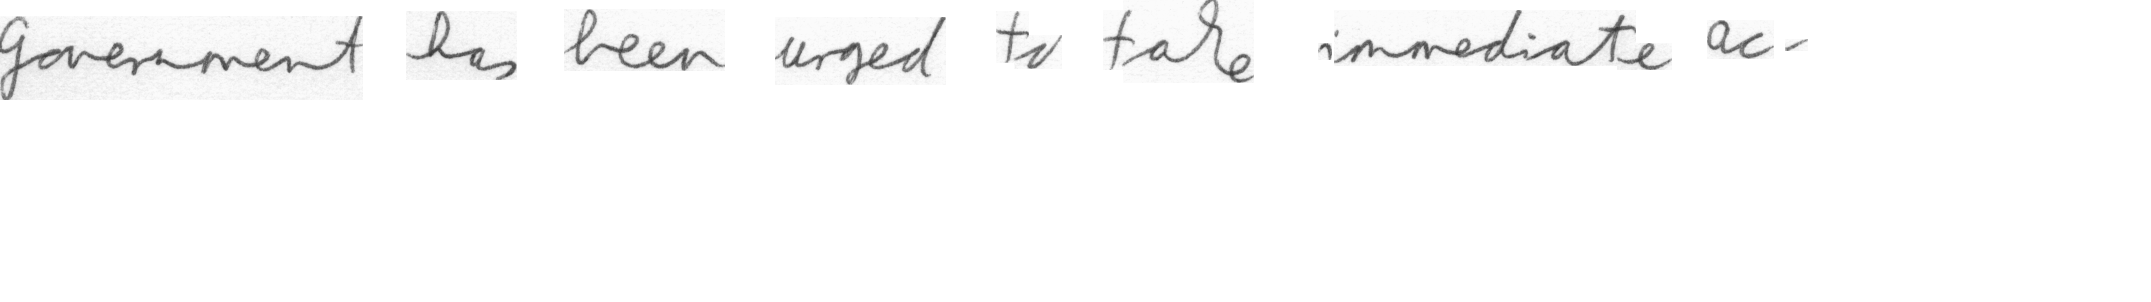 Government has been urged to take immediate ac-